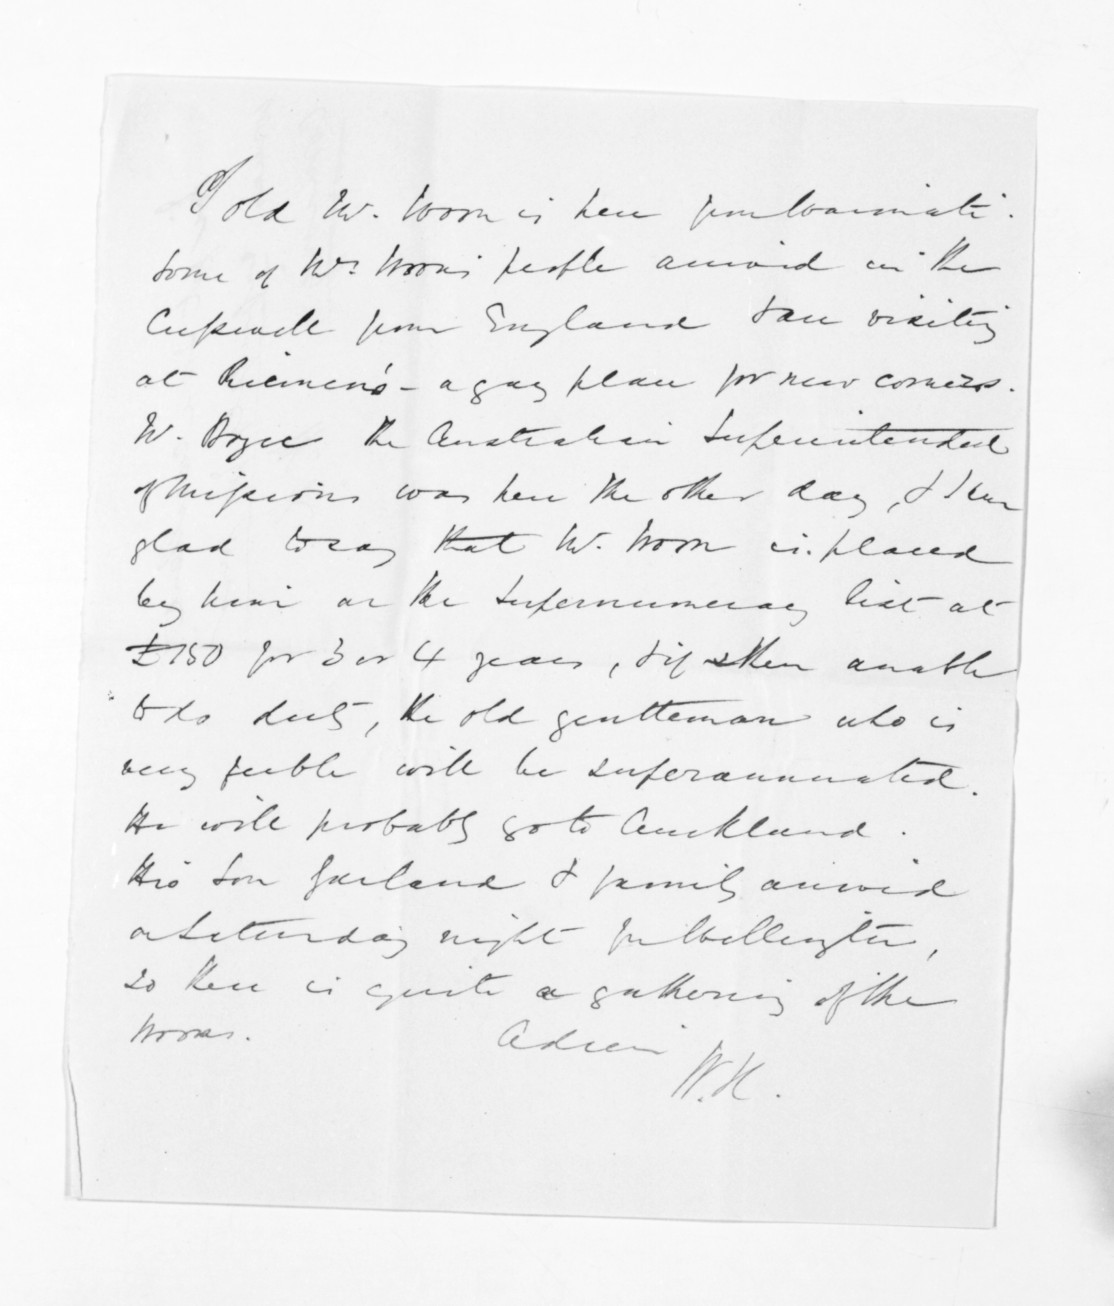 Old Mr. Woon is here from Waimate.
Some of Mrs Woon's people arrived in the
from England & are visiting
at Riemen's - a gay place for new comers.
Mr. Boyce the Australian Superintendent
of Missions was here the other day, & I am
glad to say that Mr. Woon is placed
by him on the Supernumerary list at
£150 for 3 or 4 years, & if then unable
to do duty, the old gentleman who is
very feeble will be superannuated.
He will probably go to Auckland.
His Son Garland & family arrived
on Saturday night from Wellington,
so there is quite a gathering of the
Woons. Adieu
W.H.